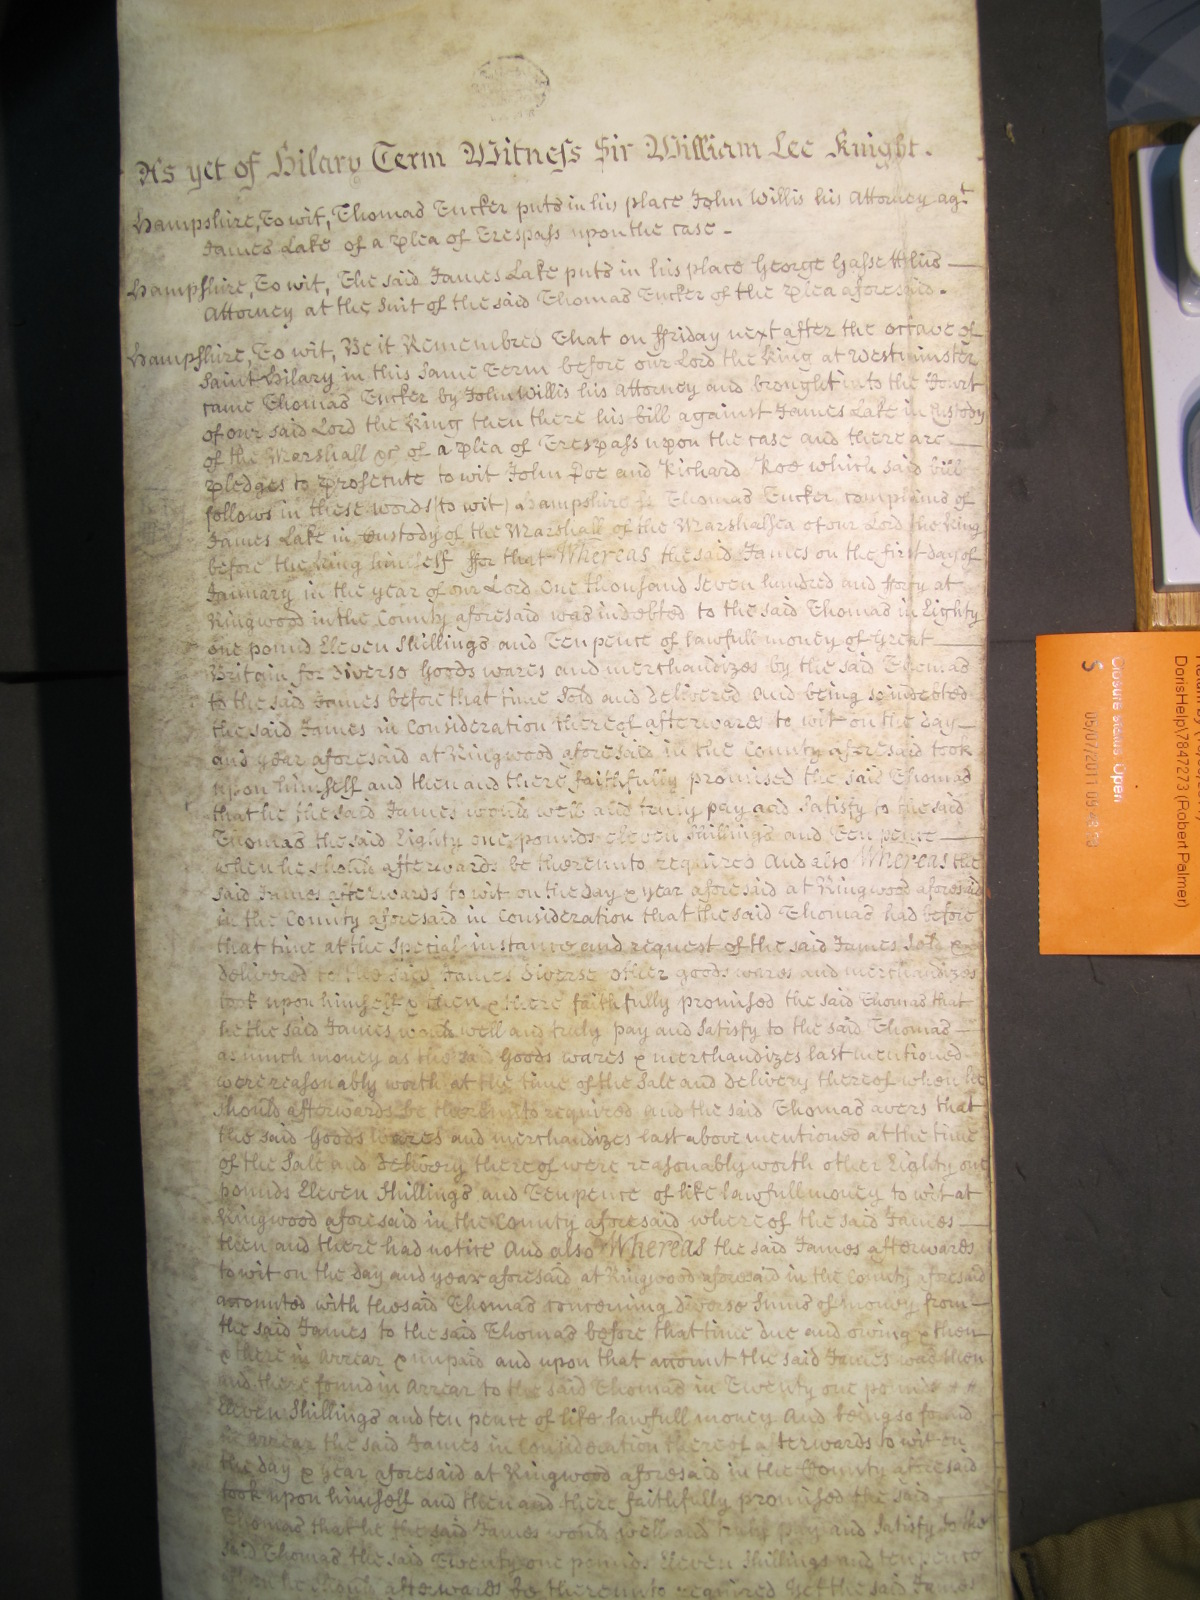 As yet of Hilary Term Witness Sir William Lee Knight.
Hampshire, To wit, Thomas Tucker puts in his place John Willis his Attorney agt
James Lake of a Plea of Trespass upon the case -
Hampshire, To wit, The said James Lake puts in his place George Gasse his
Attorney at the Suit of the said Thomas Tucker of the Plea aforesaid.
Hampshire, To wit, Be it Remembred That on ffriday next after the octave of
Saint Hilary in this same Term before our Lord the King at Westminster
came Thomas Tucker by John Willis his Attorney and brought into the Court
of our said Lord the King then there his bill against James Lake in Custody
of the Marshall &c of a plea of Trespass upon the case and there are
pledges to prosecute to wit John Doe and Richard Roe which said bill
follows in these words (to wit) Hampshire Thomas Tucker complains of
James Lake in Custody of the Marshall of the Marshalsea of our Lord the King
before the King himself ffor that Whereas the said James on the first day of
January in the year of our Lord One thousand Seven hundred and fforty at
Ringwood in the County aforesaid was indebted to the said Thomas in Eighty
one pound Eleven Shillings and Ten pence of lawfull money of Great
Britain for Diverse Goods wares and merchandizes by the said Thomas
to the said James before that time Sold and delivered And being so indebted
the said James in Consideration thereof afterwards to wit on the day
and year aforesaid at Ringwood aforesaid in the County aforesaid took
upon himself and then and there faithfully promised the said Thomas
that he the said James would well and truly pay and Satisfy to the said
Thomas the said Eighty one pounds Eleven Shillings and Ten pence
when he should afterwards be thereunto required And also Whereas the
said James afterwards to wit on the day & year aforesaid at Ringwood aforesaid
in the County aforesaid in Consideration that the said Thomas had before
that time at the Special instance and request of the said James Sold &
delivered to the said James Diverse other goods wares and merchandizes
took upon himself & then & there faithfully promised the said Thomas that
he the said James would well and truly pay and Satisfy to the said Thomas
as much money as the said Goods wares & merchandizes last mentioned
were reasonably worth at the time of the Sale and delivery thereof when he
should afterwards be thereunto required and the said Thomas avers that
the said Goods wares and merchandizes last above mentioned at the time
of the Sale and Delivery thereof were reasonably worth other Eighty one
pounds Eleven Shillings and Ten pence of like lawfull money to wit at
Ringwood aforesaid in the County aforesaid whereof the said James
then and there had notice And also Whereas the said James afterwards
to wit on the day and year aforesaid at Ringwood aforesaid in the County aforesaid
accounted with the said Thomas concerning diverse Sums of money from
the said James to the said Thomas before that time due and owing & then
& there in Arrear & unpaid and upon that account the said James was then
and there found in Arrear to the said Thomas in Twenty one pounds
Eleven Shillings and ten pence of like lawfull money And being so found
in Arrear the said James in Consideration thereof afterwards to wit on
the day & year aforesaid at Ringwood aforesaid in the County aforesaid
took upon himself and then and there faithfully promised the said
Thomas that he the said James would well and truly pay and Satisfy to the
said Thomas the said Twenty one pounds Eleven Shillings and ten pence
when he should afterwards be thereunto required Yet the said James
DorisHelp\7847273 (Robert Palmer)
Closure status Open
5
05/07/2011 09: